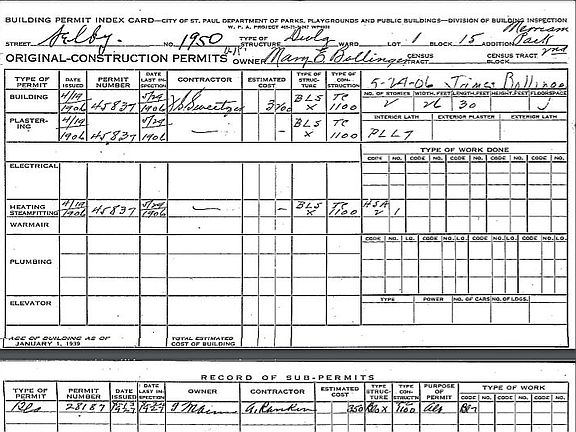 BUILDING PERMIT INDEX CARD—CITY OF ST. PAUL DEPARTMENT OF PARKS, PLAYGROUNDS AND PUBLIC BUILDINGS—DIVISION OF BUILDING INSPECTION
W. P. A. PROJECT
STREET Selby NO. 1950 TYPE OF STRUCTURE Dwlg WARD LOT 1 BLOCK 15 ADDITION Merriam Park 2nd
ORIGINAL-CONSTRUCTION PERMITS OWNER Mary E Bollinger CENSUS TRACT CENSUS BLOCK
TYPE OF PERMIT DATE ISSUED PERMIT NUMBER DATE LAST INSPECTION CONTRACTOR ESTIMATED COST TYPE OF STRUCTURE TYPE OF CONSTRUCTION 5-24-06
NO. OF STORIES WIDTH, FEET LENGTH, FEET HEIGHT, FEET FLOORSPACE
BUILDING 4/19 1906 45837 5/24 1906 BLS X TC 1100 2 26 30
PLASTERING 4/19 1906 45837 5/24 1906 — — BLS X TC 1100
INTERIOR LATH EXTERIOR PLASTER EXTERIOR LATH
PLL7
TYPE OF WORK DONE
CODE NO. CODE NO. CODE NO. CODE NO. CODE NO.
ELECTRICAL
HEATING STEAMFITTING 4/19 1906 45837 5/24 1906 — — BLS X TC 1100 HSA 2 1
WARMAIR
CODE NO. LO. CODE NO. LO. CODE NO. LO. CODE NO. LO.
PLUMBING
ELEVATOR
TYPE POWER NO. OF CARS NO. OF LDGS.
AGE OF BUILDING AS OF JANUARY 1, 1939 TOTAL ESTIMATED COST OF BUILDING
RECORD OF SUB-PERMITS
TYPE OF PERMIT PERMIT NUMBER DATE ISSUED DATE LAST INSPECTION OWNER CONTRACTOR ESTIMATED COST TYPE STRUCTURE TYPE CONSTCN PURPOSE OF PERMIT TYPE OF WORK
28187 A. Rankin 350 TC 1100